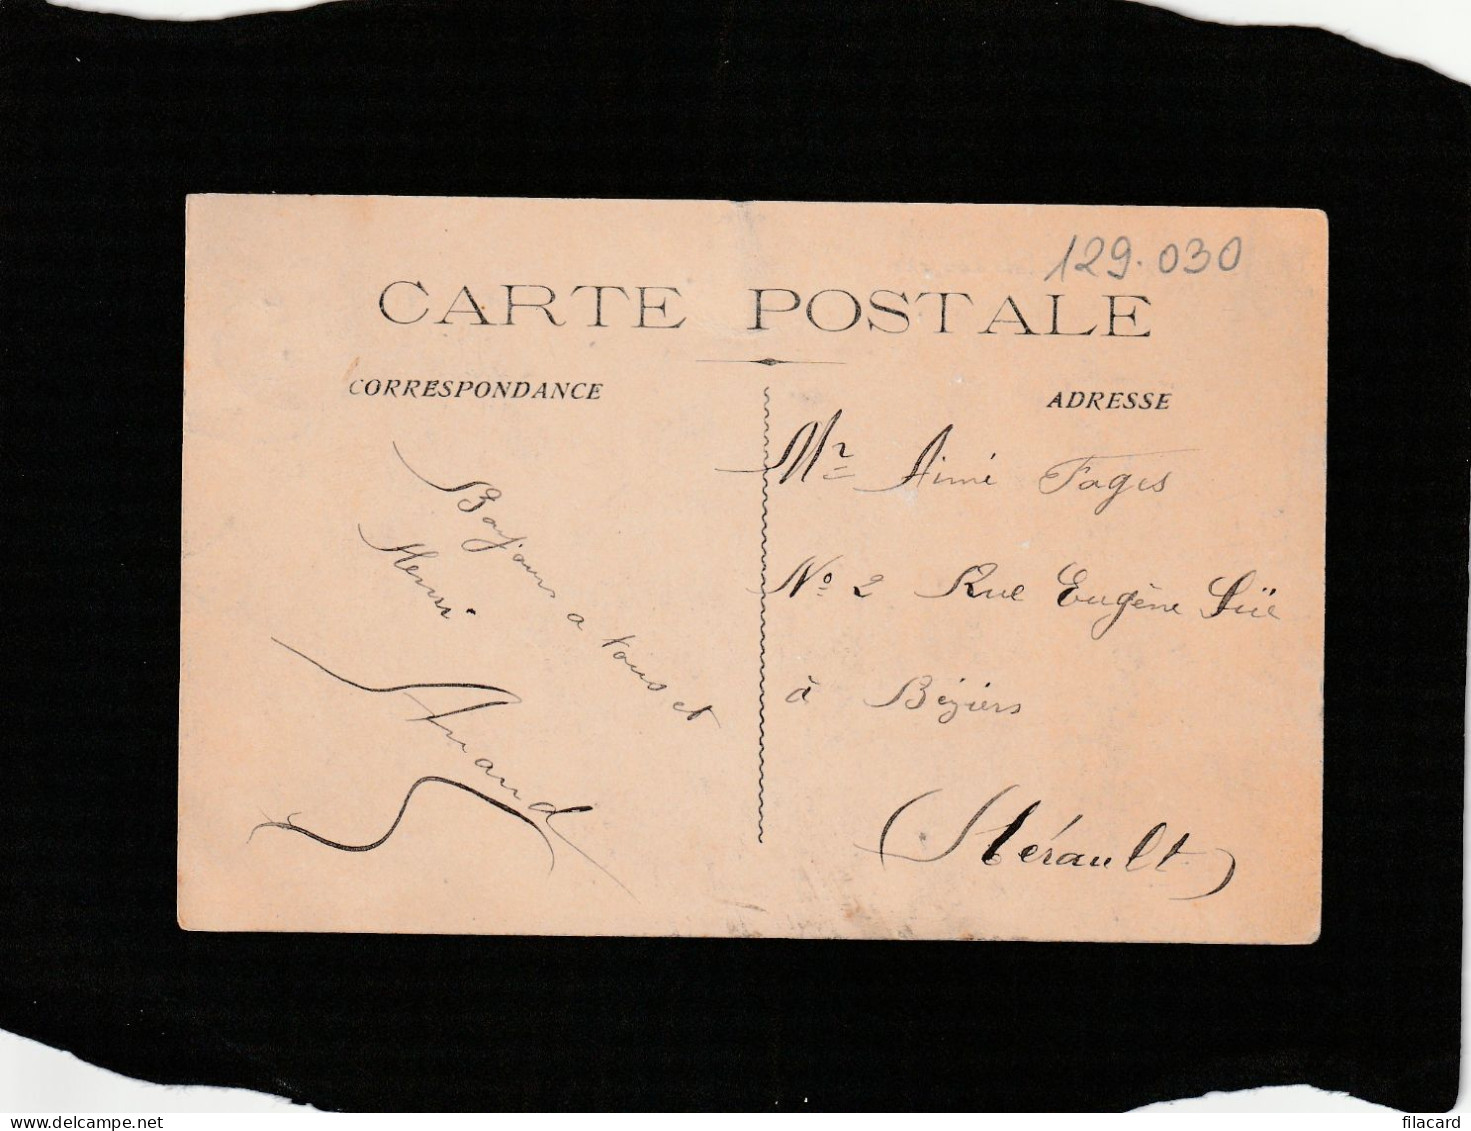 129.030
CARTE POSTALE
CORRESPONDANCE
ADRESSE
Bonjour a tous et
Henri
Mr Aimé Fages
No 2 Rue Eugène Süe
à Béziers
(Hérault)
delcampe.net
filacard